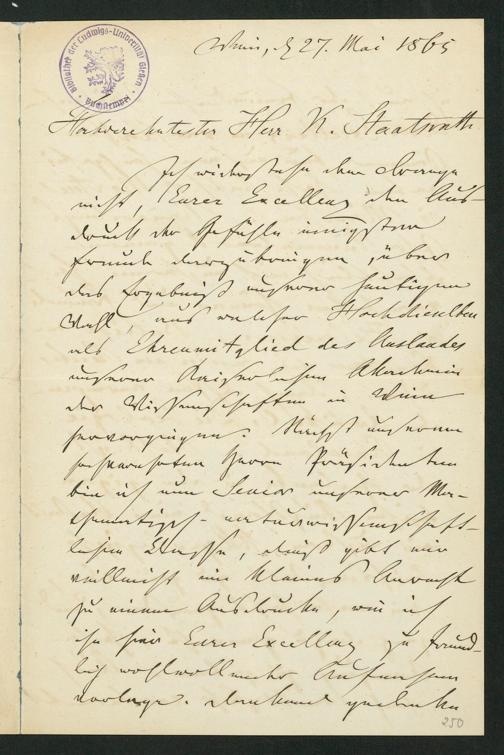 Bibliothek der Ludwigs-Universität Gießen
Wien, d 27. Mai 1865
Hochverehrtester Herr K. Staatsrath
Ich widerstehe dem Drange
nicht, Eurer Excellenz den Aus-
druck der Gefühle innigster
Freude darzubringen, über
das Ergebniß unserer heutigen
Wahl, aus welcher Hochdieselben
als Ehrenmitglied des Auslandes
unserer Kaiserlichen Akademie
der Wissenschaften in Wien
hervorgingen. Nächst unserem
hochverehrten Herrn Präsidenten
bin ich nun Senior unserer Ma-
thematisch-naturwissenschaft-
lichen Classe, dieß gibt mir
vielleicht ein kleines Anrecht
zu einem Ausdrucke, wie ich
ihn hier Eurer Excellenz zu freund-
lich wohlwollender Aufnahme
vorlege. Dankend gedenke
250